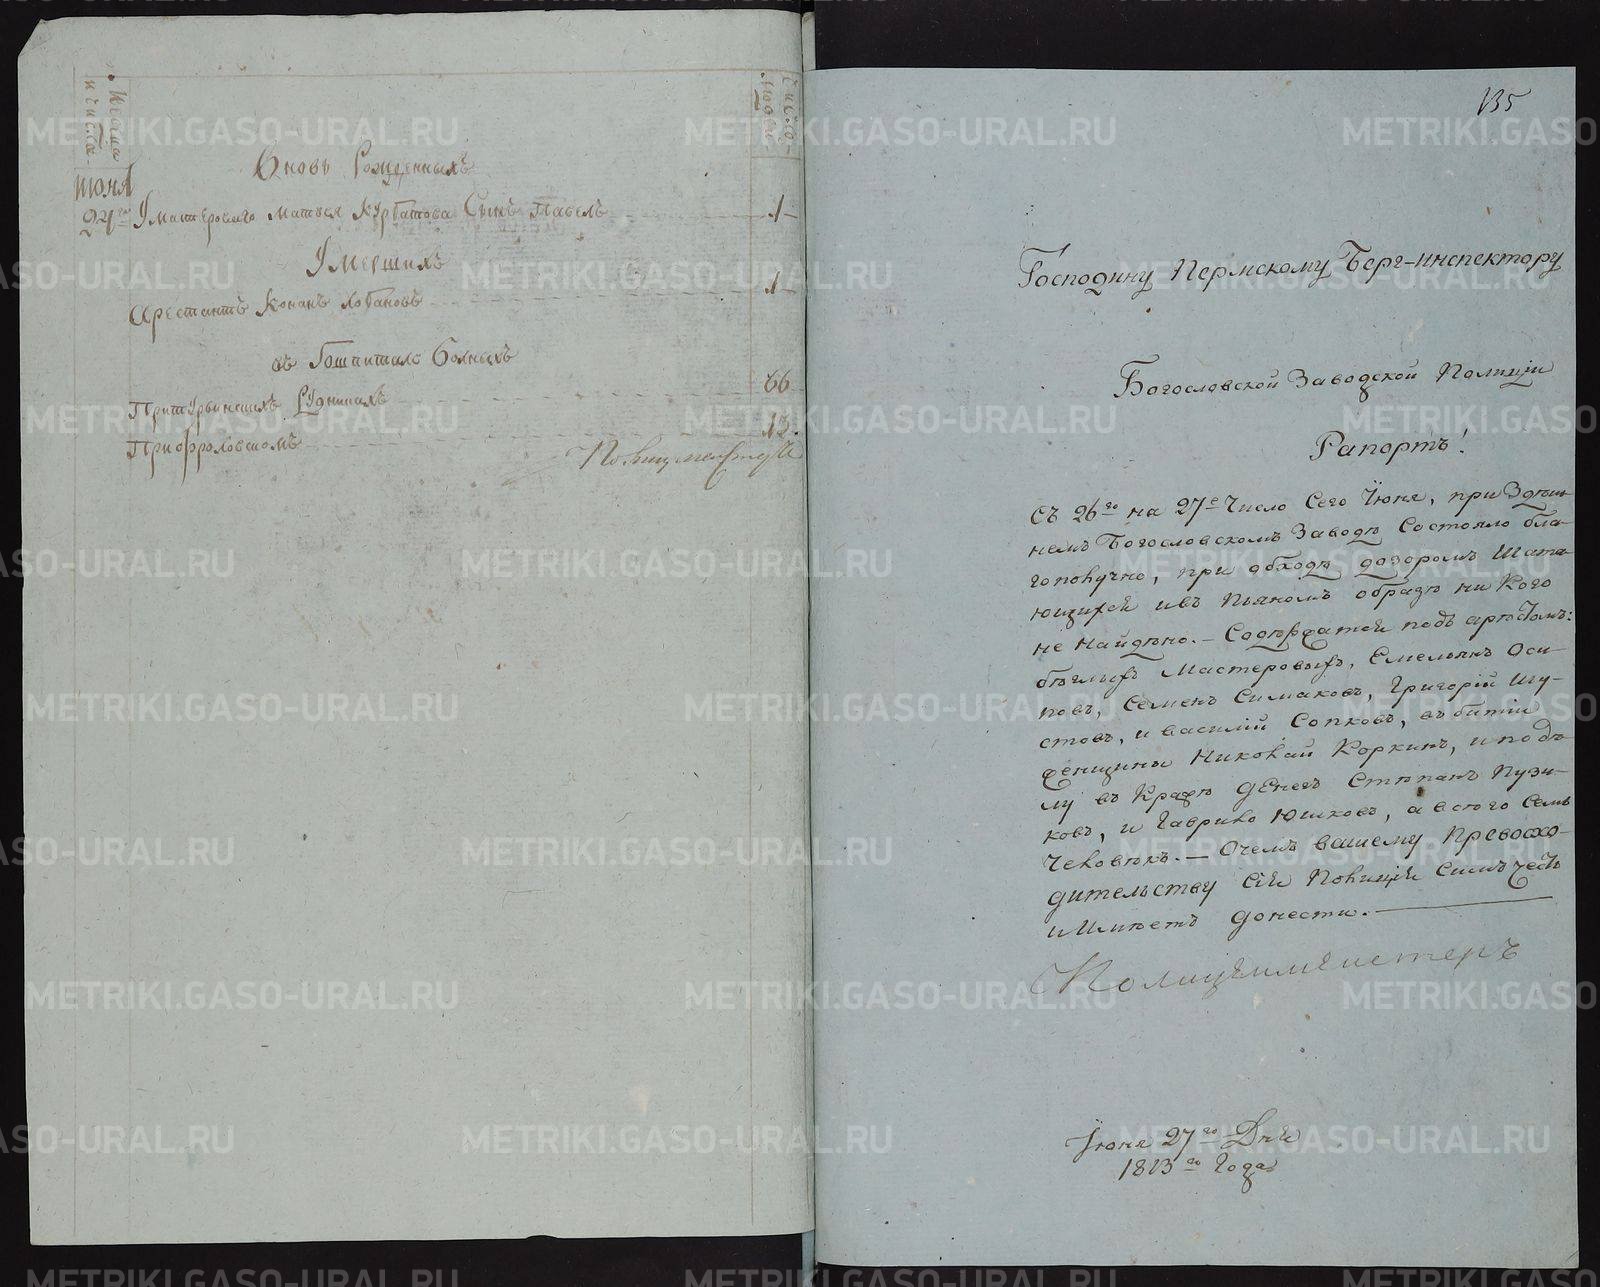 Месяца
и числа
Число
людей
Вновь Рожденныхъ
Июня
24го У мастероваго Матвея Курбатова Сынъ Павелъ 1
Умершихъ
Арестантъ Конанъ Лобановъ 1
въ Гошпитале Больныхъ
При Турьинскихъ Рудникахъ 66
При Фроловскомъ 13.
Полицмейстеръ
135
Господину Пермскому Берг-инспектору
Богословской Заводской Полиціи
Рапортъ!
Съ 26го на 27е Число Сего Июня, при Здеш-
немъ Богословскомъ Заводѣ Состояло бла-
гополучно, при обходѣ дозоромъ Шата-
ющихся и въ Пьяномъ образѣ ни Кого
не найдѣно. — Содѣржатся подъ арѣстомъ:
бѣглыхъ Мастеровыхъ, Емельянъ Оси-
повъ, Семенъ Симаковъ, Григорій Шу-
стовъ, и василій Сопковъ, въ битіи
женщины Николай Коркинъ, и по дѣ-
лу въ Кражѣ денегъ Стѣпанъ Пузи-
ковъ, и Гаврило Юшковъ, а всѣго Семь
Человѣкъ. — О чемъ вашему Превосхо-
дительству Сія Полиція Симъ честь
имѣетъ донести.
Полицеймейстеръ
Июня 27го Дня
1813го Года
METRIKI.GASO-URAL.RU